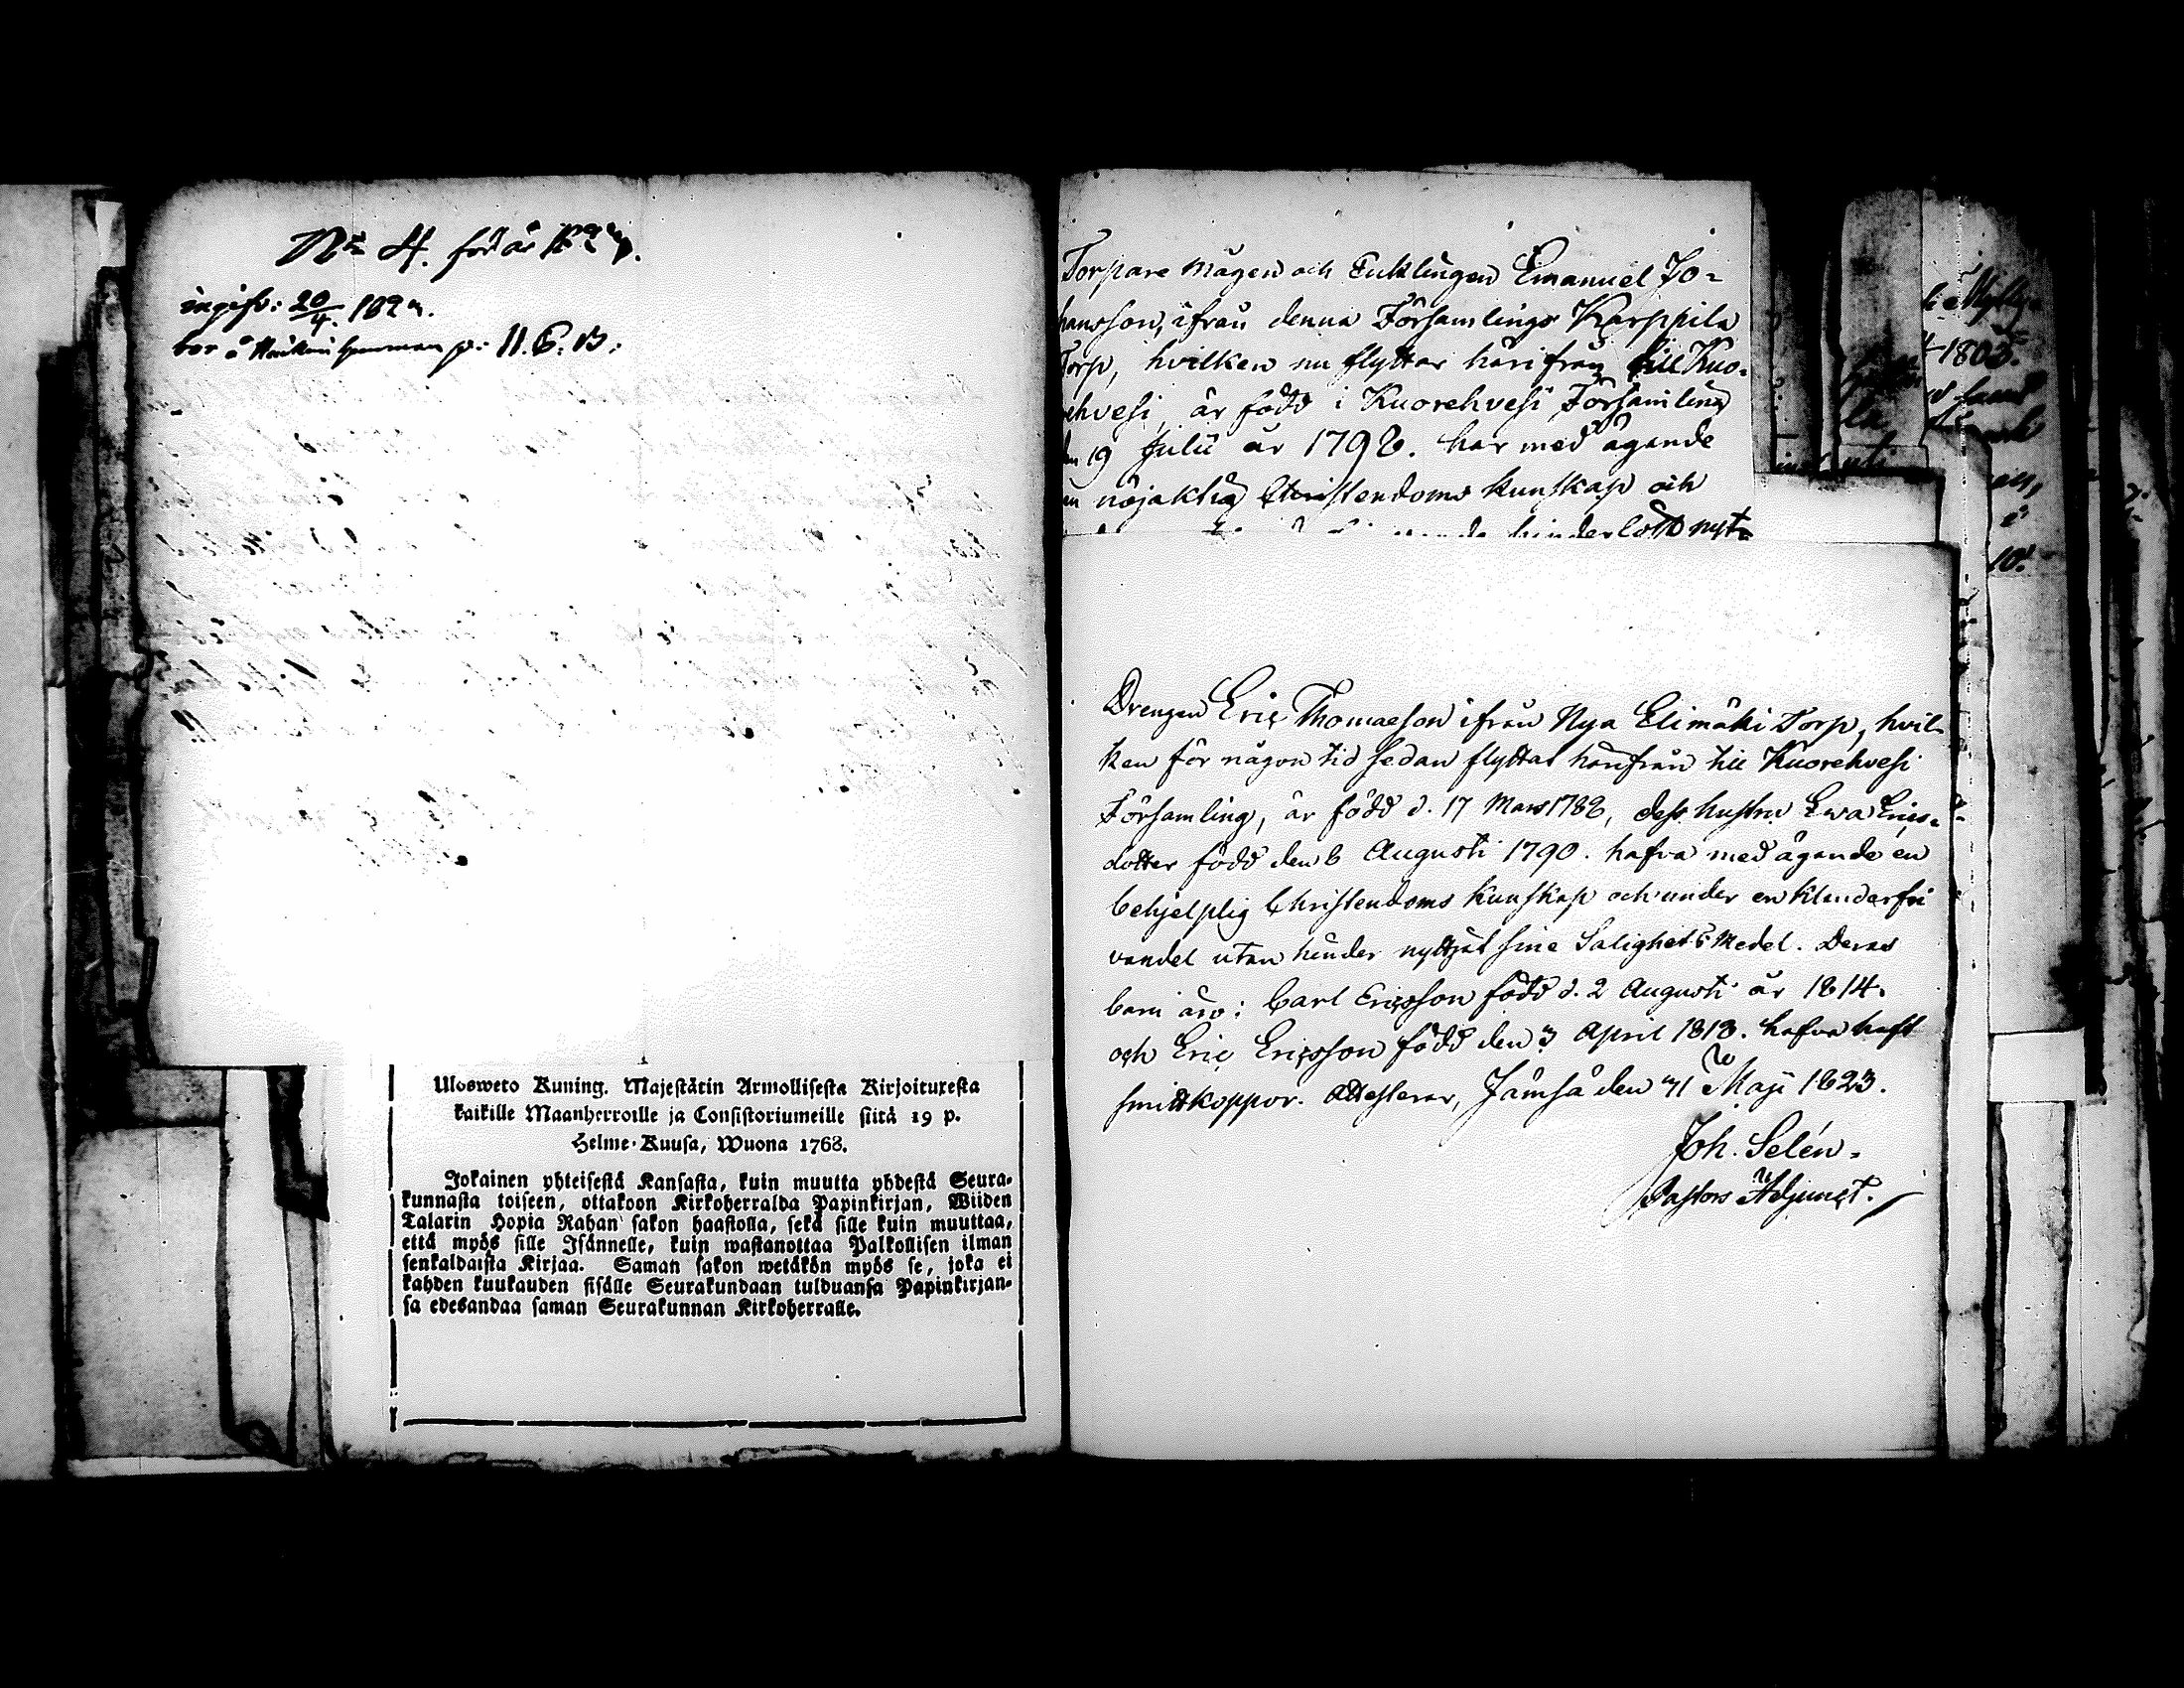 No 4. för år 182
ingifv: 20/4. 182
bor å p: 11. 6. B:
Ulosweto Kuning. Majestätin Armollisesta Kirjoituxesta
kaikille Maanherroille ja Consistoriumeille siitä 19 p.
Helme-Kuusa, Wuona 1768.
Jokainen yhteisestä Kansasta, kuin muutta yhdestä Seura-
kunnasta toiseen, ottakoon Kirkoherralda Papinkirjan, Wiiden
Talarin Hopia Rahan sakon haastolla, sekä sille kuin muuttaa,
että myös sille Isännelle, kuin wastanottaa Palkollisen ilman
senkaldaista Kirjaa. Saman sakon wetäkön myös se, joka ei
kahden kuukauden sisälle Seurakundaan tulduansa Papinkirjan-
sa edesandaa saman Seurakunnan Kirkoherralle.
Torpare mågen och Enklingen Emanuel Jo-
hansson, ifrån denna Församlings Karppila
Torp, hvilken nu flyttar härifrån till Kuo-
rehvesi, är född i Kuorehvesi Församling
den 19 Julii år 1798. har med ägande
en nöjaktig Christendoms kunskap och
hinder lott nyt-
Drengen Eric Thomaeson ifrån Nya Elimäki Torp, hvil-
ken för någon tid sedan flyttat härifrån till Kuorehvesi
Församling, är född d. 17 Mars 1788, dess hustru Ewa Erics-
dotter född den 6 Augusti 1790. hafva med ägande en
behjelplig Christendoms kunskap och under en klanderfri
vandel utan hinder nyttjat sine Salighets Medel. Deras
barn äro: Carl Ericsson född d. 2 Augusti år 1814.
och Eric Ericsson född den 3 April 1818. hafva haft
smittkoppor. Attesterar, Jämsä den 31 Maji 1823.
Joh. Selén.
Pastors Adjunct.
1803.
10.